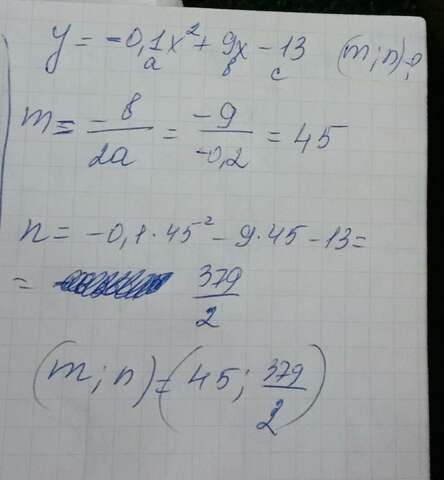 y = -0,1x² + 9x - 13 (m; n) - ?
a в c
m = -в/2a = -9/-0,2 = 45
n = -0,1 · 45² - 9 · 45 - 13 =
= 379/2
(m; n) = (45; 379/2)